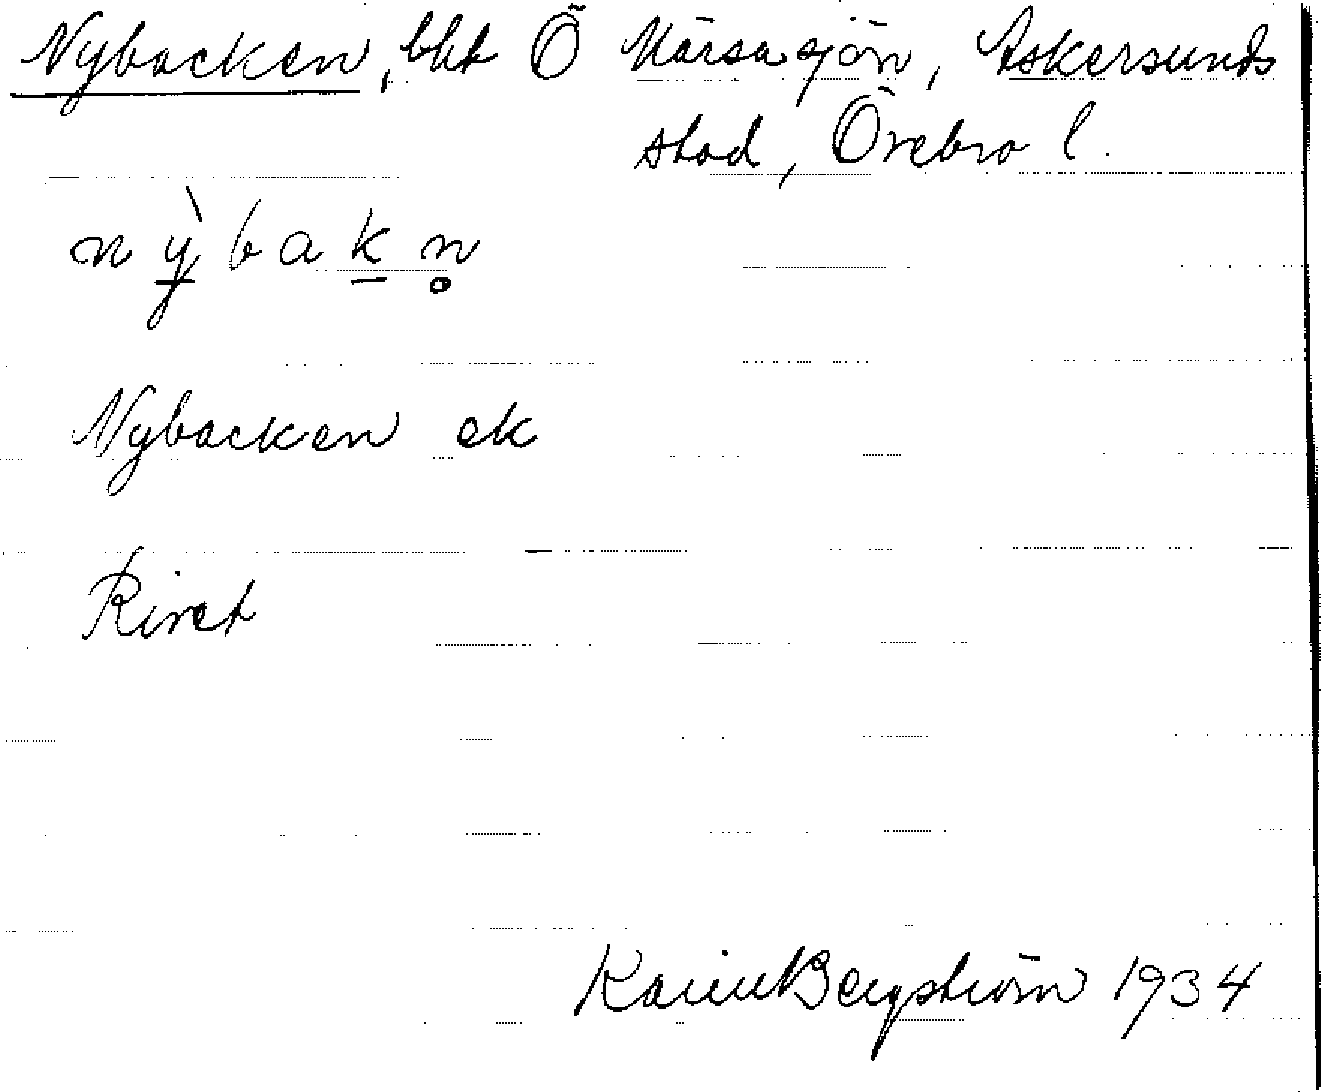 Nybacken, bkt Ö Kärsasjön, Askersunds
stad, Örebro l.
nỳbakn̥
Nybacken ek
Rivet
Karin Bergström 1934